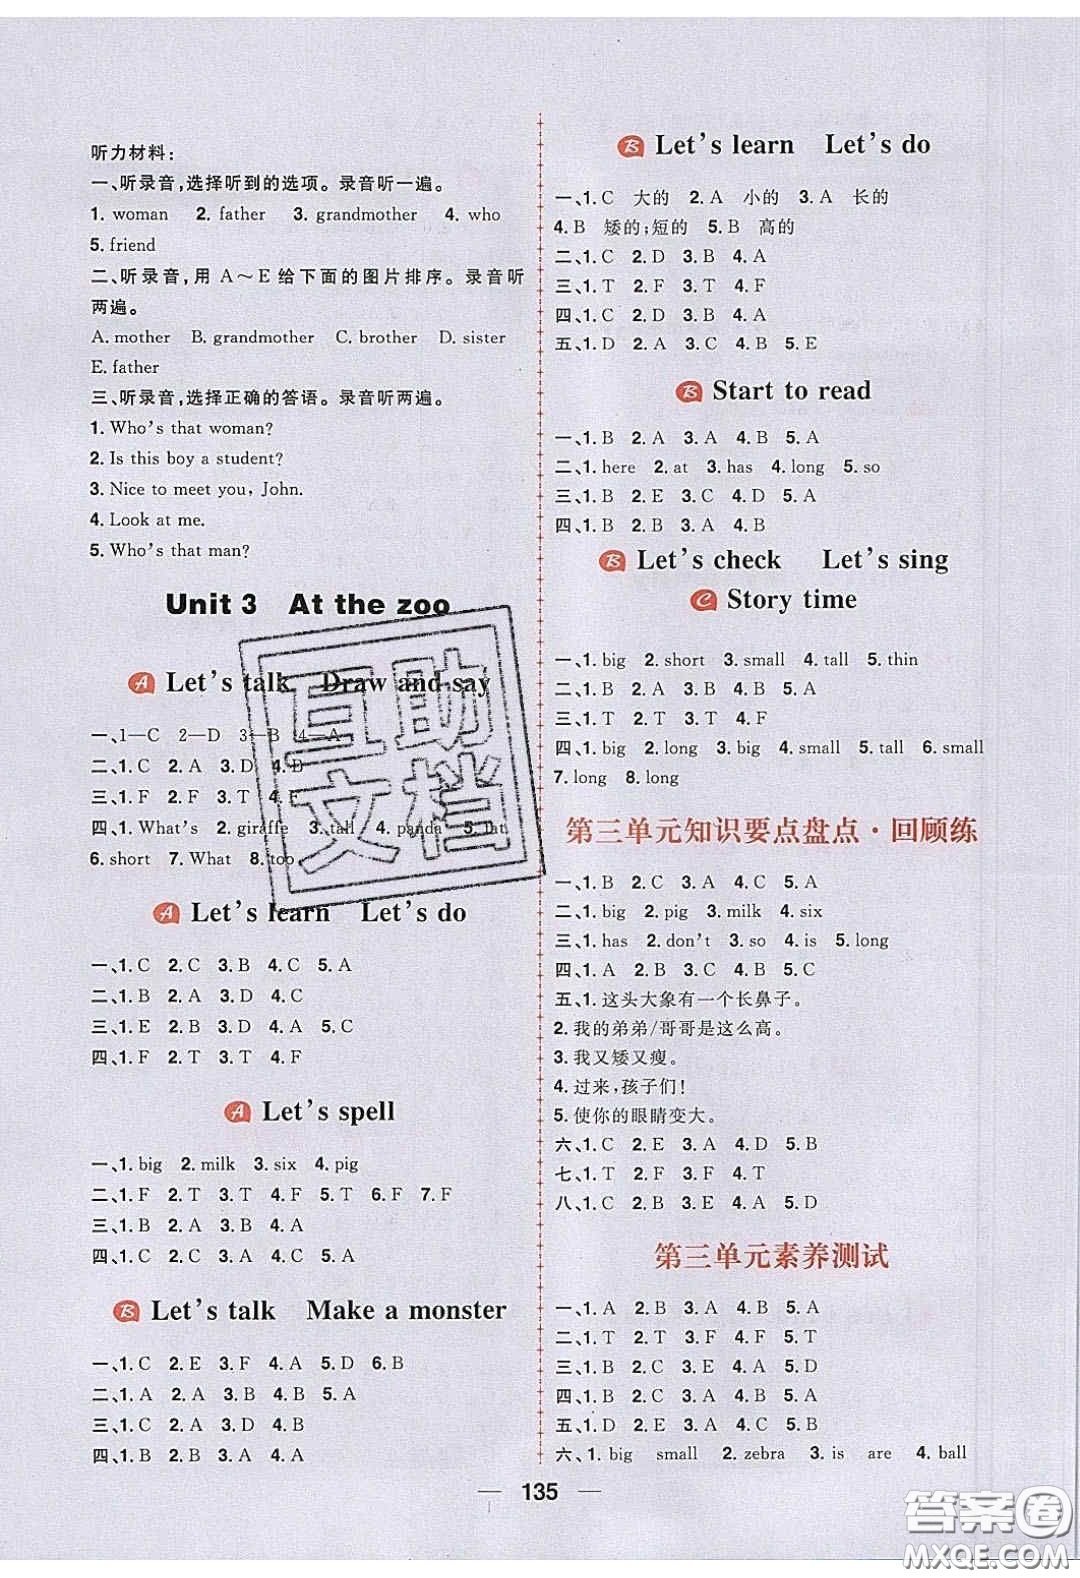 听力材料：
一、听录音，选择听到的选项。录音听一遍。
1. woman 2. father 3. grandmother 4. who
5. friend
二、听录音，用 A～E 给下面的图片排序。录音听
两遍。
A. mother B. grandmother C. brother D. sister
E. father
三、听录音，选择正确的答语。录音听两遍。
1. Who's that woman?
2. Is this boy a student?
3. Nice to meet you, John.
4. Look at me.
5. Who's that man?
Unit 3 At the zoo
A Let's talk Draw and say
一、1—C 2—D 3—B 4—A
二、1. C 2. A 3. D 4. B
三、1. F 2. F 3. T 4. F
四、1. What's 2. giraffe 3. tall 4. panda 5. fat
6. short 7. What 8. too
A Let's learn Let's do
一、1. C 2. C 3. B 4. C 5. A
二、1. B 2. A 3. D 4. C
三、1. E 2. B 3. D 4. A 5. C
四、1. F 2. T 3. T 4. F
A Let's spell
一、1. big 2. milk 3. six 4. pig
二、1. F 2. T 3. T 4. F 5. T 6. F 7. F
三、1. B 2. A 3. B 4. A
四、1. C 2. C 3. B 4. A 5. A
B Let's talk Make a monster
一、1. C 2. E 3. F 4. A 5. D 6. B
二、1. A 2. A 3. B 4. B 5. A
三、1. C 2. A 3. D 4. B
四、1. B 2. A 3. B 4. A 5. A
B Let's learn Let's do
一、1. C 大的 2. A 小的 3. A 长的
4. B 矮的；短的 5. B 高的
二、1. C 2. D 3. B 4. A
三、1. T 2. F 3. T 4. F
四、1. C 2. D 3. B 4. A
五、1. D 2. A 3. C 4. B 5. E
B Start to read
一、1. B 2. A 3. A 4. B 5. A
二、1. here 2. at 3. has 4. long 5. so
三、1. B 2. E 3. C 4. D 5. A
四、1. B 2. B 3. A 4. B
B Let's check Let's sing
C Story time
一、1. big 2. short 3. small 4. tall 5. thin
二、1. B 2. A 3. B 4. A 5. A
三、1. T 2. T 3. T 4. F
四、1. big 2. long 3. big 4. small 5. tall 6. small
7. long 8. long
第三单元知识要点盘点·回顾练
一、1. B 2. C 3. A 4. C 5. A
二、1. big 2. pig 3. milk 4. six
三、1. has 2. don't 3. so 4. is 5. long
四、1. A 2. B 3. C 4. B 5. C
五、1. 这头大象有一个长鼻子。
2. 我的弟弟/哥哥是这么高。
3. 我又矮又瘦。
4. 过来，孩子们！
5. 使你的眼睛变大。
六、1. C 2. E 3. A 4. D 5. B
七、1. T 2. F 3. F 4. T
八、1. C 2. B 3. E 4. A 5. D
第三单元素养测试
一、1. A 2. B 3. A 4. B 5. A
二、1. T 2. T 3. F 4. F 5. T
三、1. B 2. C 3. E 4. A 5. D
四、1. B 2. C 3. A 4. B 5. A
五、1. D 2. E 3. A 4. B 5. C
六、1. big small 2. zebra 3. is are 4. ball
135
互助
文档
答案圈
MXQE.COM